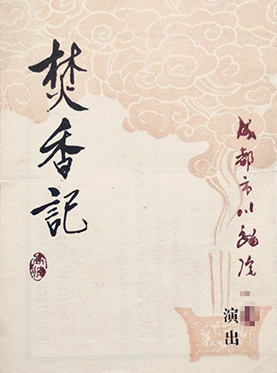 焚香記
成都市川劇院
演出